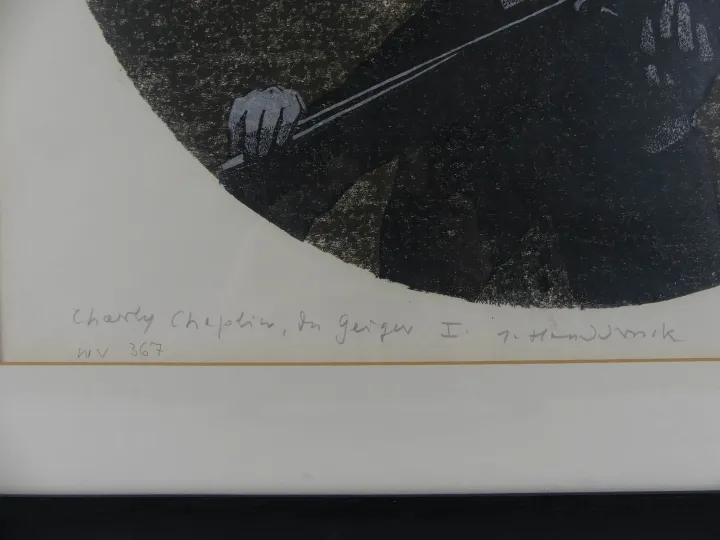 Charly Chaplin, der Geiger I.
WV 367